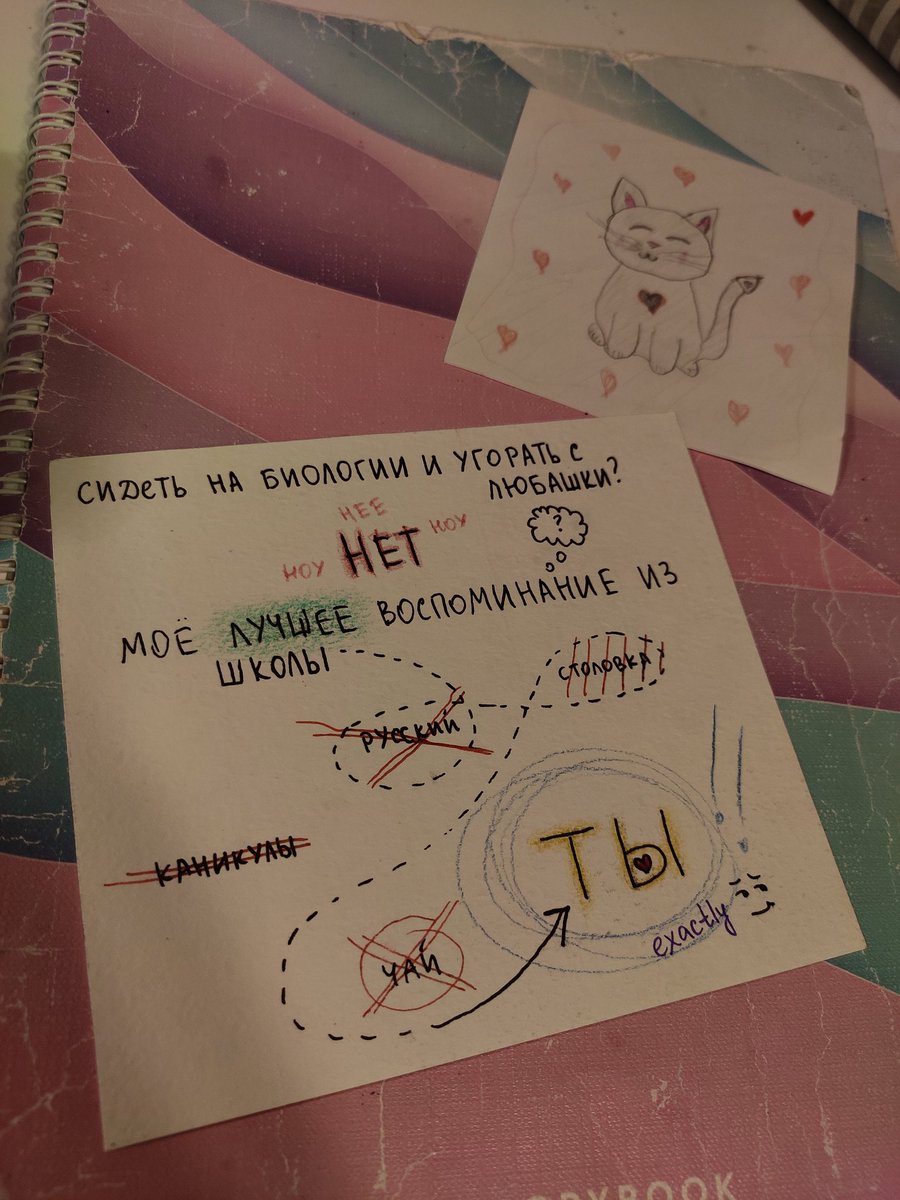 СИДЕТЬ НА БИОЛОГИИ И УГОРАТЬ С
ЛЮБАШКИ?
НЕЕ
НОУ НЕТ НОУ
?
МОЁ ЛУЧШЕЕ ВОСПОМИНАНИЕ ИЗ
ШКОЛЫ
СТОЛОВКА
РУССКИЙ
КАНИКУЛЫ
ТЫ
!!
exactly
ЧАЙ